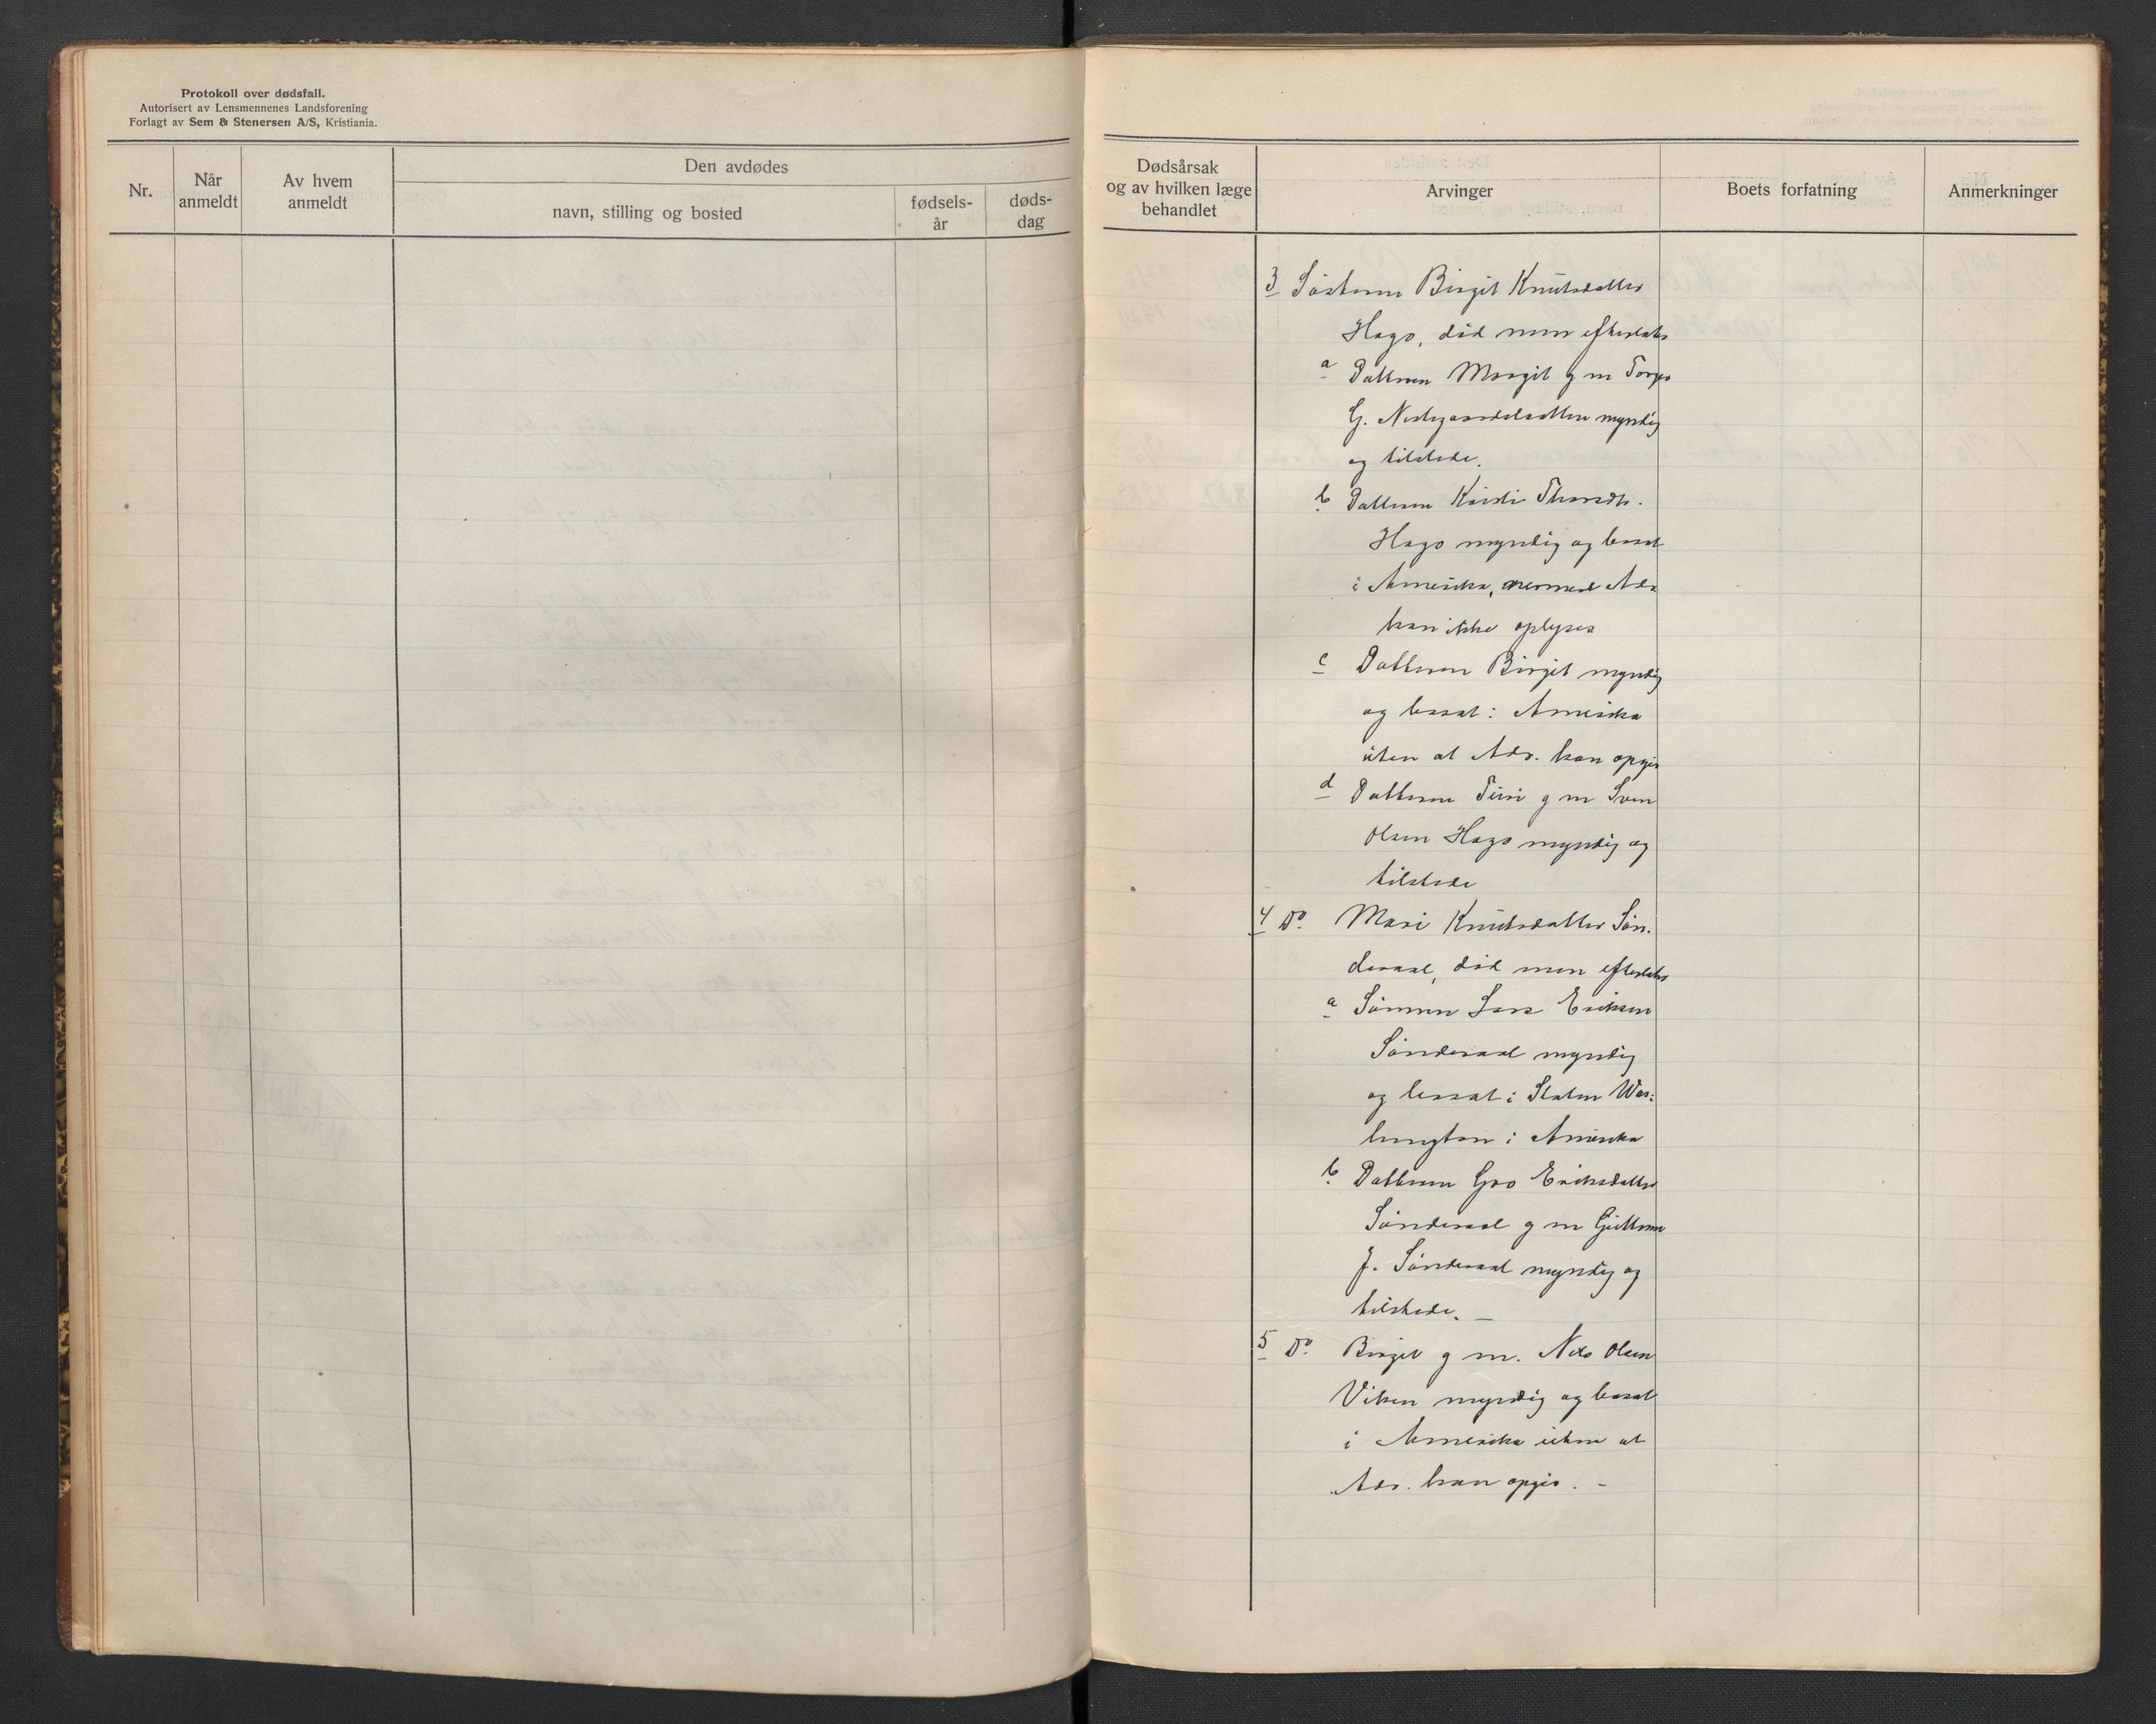 Protokoll over dødsfall.
Autorisert av Lensmennenes Landsforening
Forlagt av Sem & Stenersen A/S, Kristiania.
Nr.
Når anmeldt
Av hvem anmeldt
Den avdødes
navn, stilling og bosted
fødsels-år
døds-dag
Dødsårsak og av hvilken læge behandlet
Arvinger
Boets forfatning
Anmerkninger
3 Søsteren Birgit Knutsdatter
Hago, død men efterlater
a Datteren Margit g m Torger
G. Nedgaardslatten myndig
og tilstede.
b Datteren Kirsti Thorsdtr.
Hago myndig og bosat
i Amerika, nermere Adr
kan ikke oplyses
c Datteren Birgit myndig
og bosat i Amerika
uten at Adr. kan opgis
d Datteren Turi g m Sven
Olsen Hago myndig og
tilstede
4 Do Mari Knutsdatter Søn-
deraal, død men efterlater
a Sønnen Lars Eriksen
Sønderaal myndig
og bosat i Staten Was-
hington i Amerika
b Datteren Gro Eriksdatter
Sønderaal g m Guttorm
J. Sønderaal myndig og
tilstede. -
5 Do Birgit g m. Nils Olsen
Viken myndig og bosat
i Amerika uten at
Adr. kan opgis. -